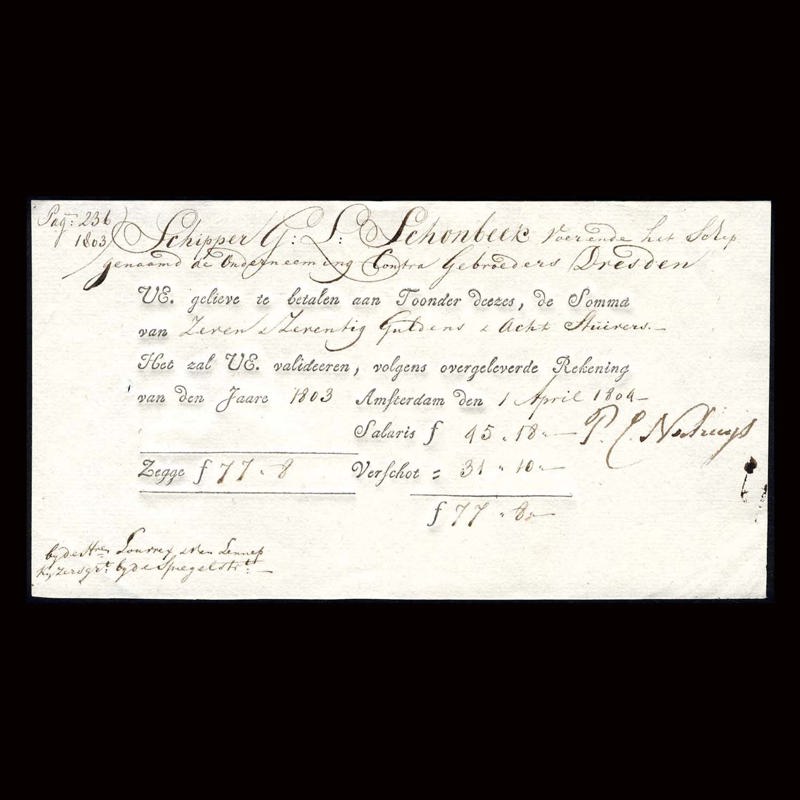 Pag: 236
1803
Schipper G: L: Schonbeek voerende het Schip
genaamd de Onderneeming Contra Gebroeders Dresden
UE. gelieve te betalen aan Toonder deezes, de Somma
van Zeven & Zeventig Guldens & Acht Stuivers.—
Het zal UE. valideeren, volgens overgeleverde Rekening
van den Jaare 1803 Amsterdam den 1 April 1804—
Salaris f 45 „ 18 „—
Zegge f 77 „ 8 Verschot = 31 „ 10 „—
f 77 „ 8 „—
by de Hren van Lennep
Kyzersgrt. by de Spiegelstrt.—